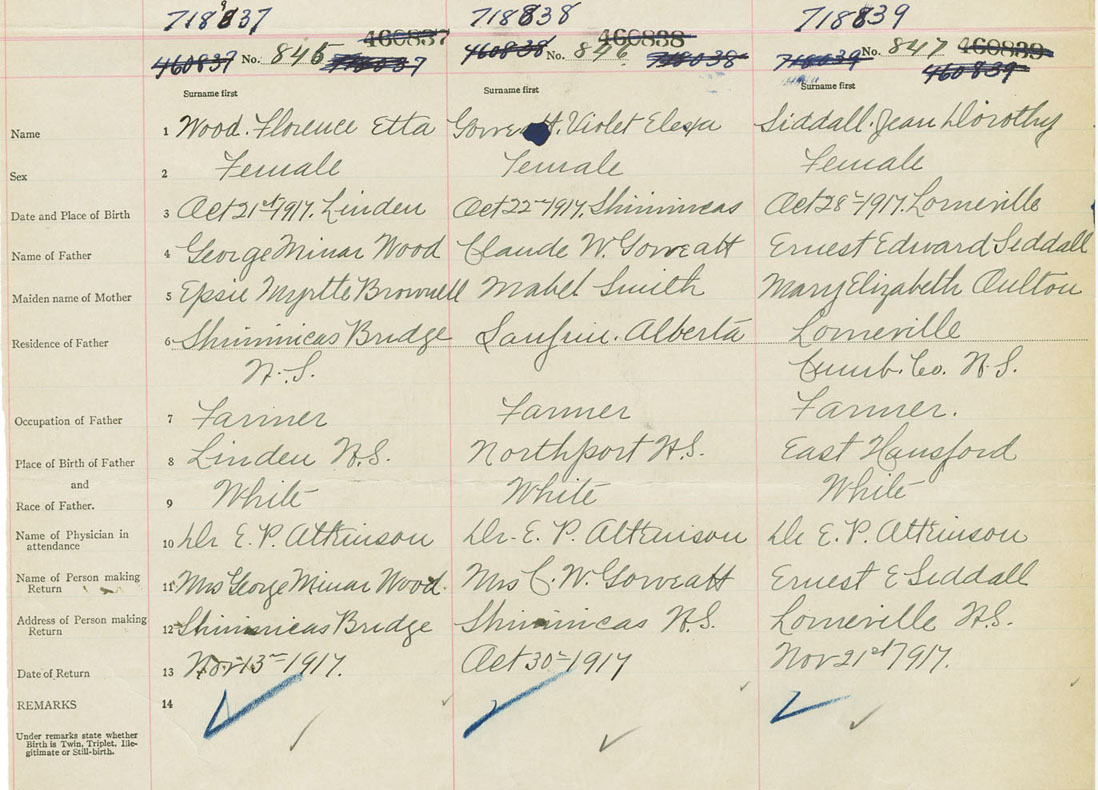 718837 718838 718839
No. 845 460837 No. 846 460838 No. 847 460839
460837 718037 460838 718038 718039 460839
Surname first Surname first Surname first
Name 1 Wood. Florence Etta Violet Siddall. Jean Dorothy
Sex 2 Female Female Female
Date and Place of Birth 3 Oct 21st 1917. Linden Oct 22 1917. Shinimicas Oct 28 1917. Lorneville
Name of Father 4 George Minar Wood Claude W. Gorveatt Ernest Edward Siddall
Maiden name of Mother 5 Epsie Myrtle Brownell Mabel Smith Mary Elizabeth Oulton
Residence of Father 6 Shinimicas Bridge Alberta Lorneville
N.S. Cumb. Co. N.S.
Occupation of Father 7 Farmer Farmer Farmer.
Place of Birth of Father 8 Linden N.S. Northport N.S. East Hansford
and
Race of Father. 9 White White White
Name of Physician in
attendance 10 Dr E. P. Atkinson Dr. E. P. Atkinson Dr E. P. Atkinson
Name of Person making
Return 11 Mrs George Minar Wood. Mrs C. W. Gorveatt Ernest E Siddall
Address of Person making
Return 12 Shinimicas Bridge Shinimicas N.S. Lorneville N.S.
Date of Return 13 Nov 13 1917. Oct 30 1917 Nov 21st 1917.
REMARKS 14
Under remarks state whether
Birth is Twin, Triplet, Ille-
gitimate or Still-birth.